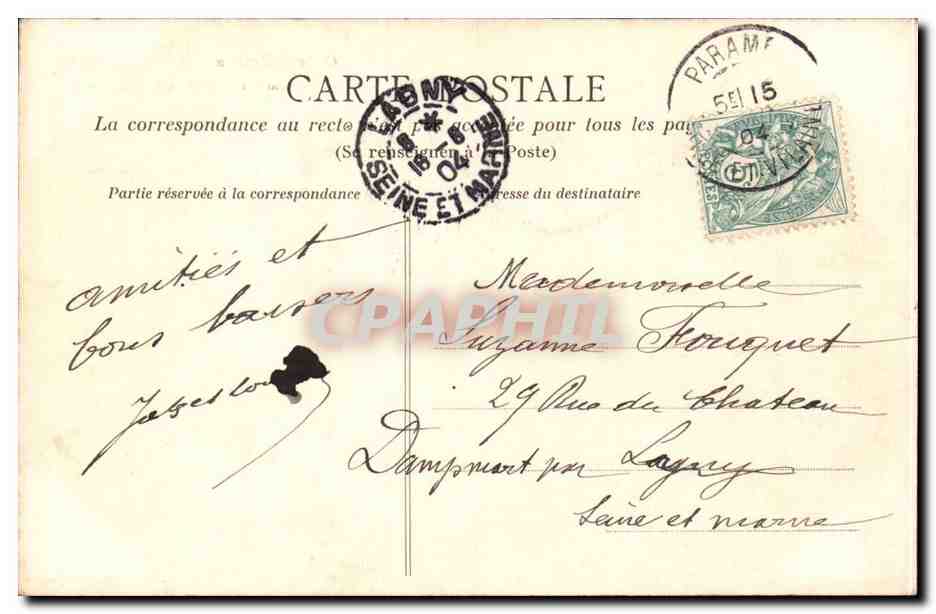 CARTE POSTALE
La correspondance au recto n'est pas acceptée pour tous les pa
(Se renseigner à la Poste)
Partie réservée à la correspondance
Adresse du destinataire
LAGNY
8
15 - 6
04
SEINE ET MARNE
PARAME
15
04
ET VILAINE
amitiés et
bons baisers
Mademoiselle
Suzanne Fouquet
29 Rue du Chateau
Dampmart par Lagny
Seine et marne
CPAPHIL